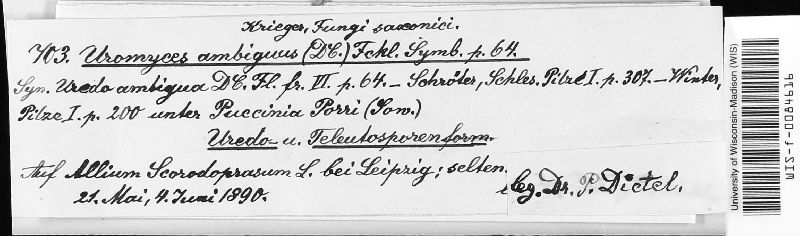 Krieger, Fungi saxonici.
703. Uromyces ambiguus (DC.) Fckl. Symb. p. 64.
Syn. Uredo ambigua DC. Fl. fr. VI. p. 64. – Schröter, Schles. Pilze I. p. 307. – Winter,
Pilze I. p. 200 unter Puccinia Porri (Sow.)
Uredo- u. Teleutosporenform.
Auf Allium Scorodoprasum L. bei Leipzig; selten.
21. Mai, 4. Juni 1890.
leg. Dr. P. Dietel.
University of Wisconsin-Madison (WIS)
WIS-f-0084616